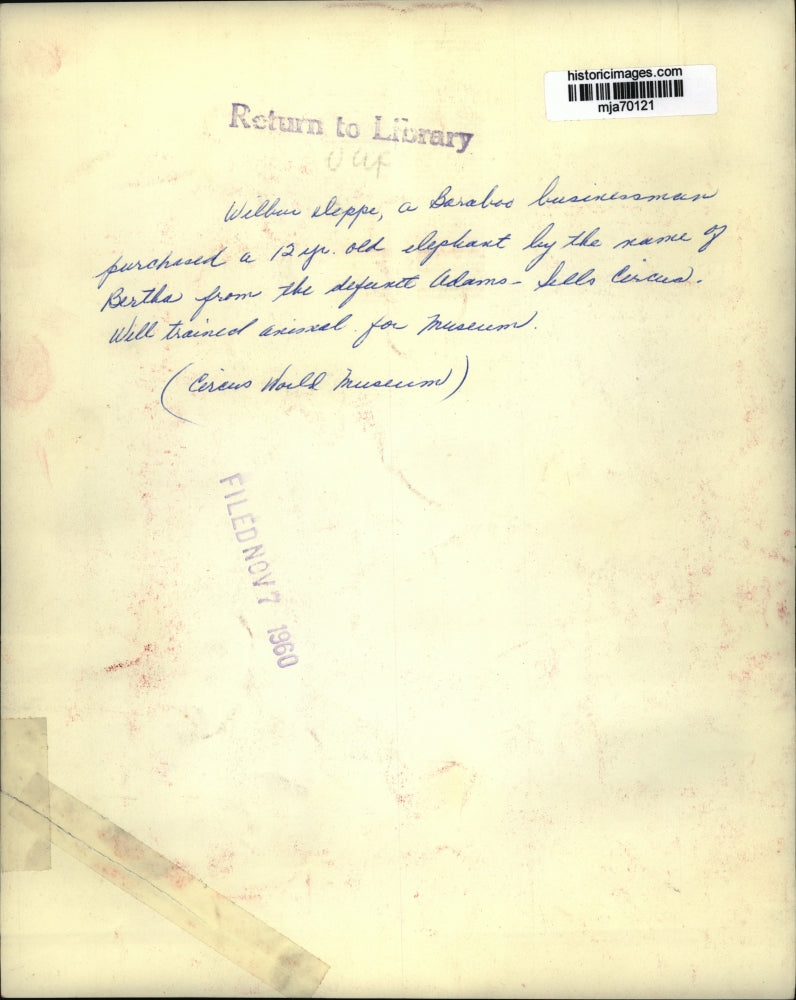 historicimages.com
mja70121
Return to Library
Wilbur Deppe, a Baraboo businessman
purchased a 12 yr. old elephant by the name of
Bertha from the defunct Adams - Sells Circus.
Well trained animal for Museum.
(Circus World Museum)
FILED NOV 7 1960